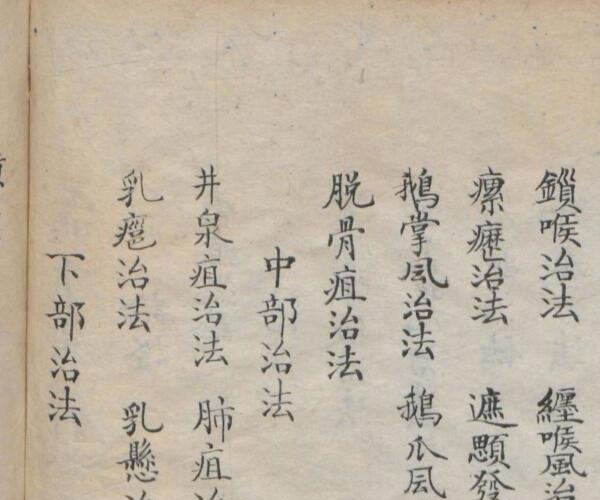 鎖喉治法 纏喉風治
瘰癧治法 遮顋發
鵝掌風治法 鵝爪風
脱骨疽治法
中部治法
井泉疽治法 肺疽治
乳癰治法 乳懸治
下部治法